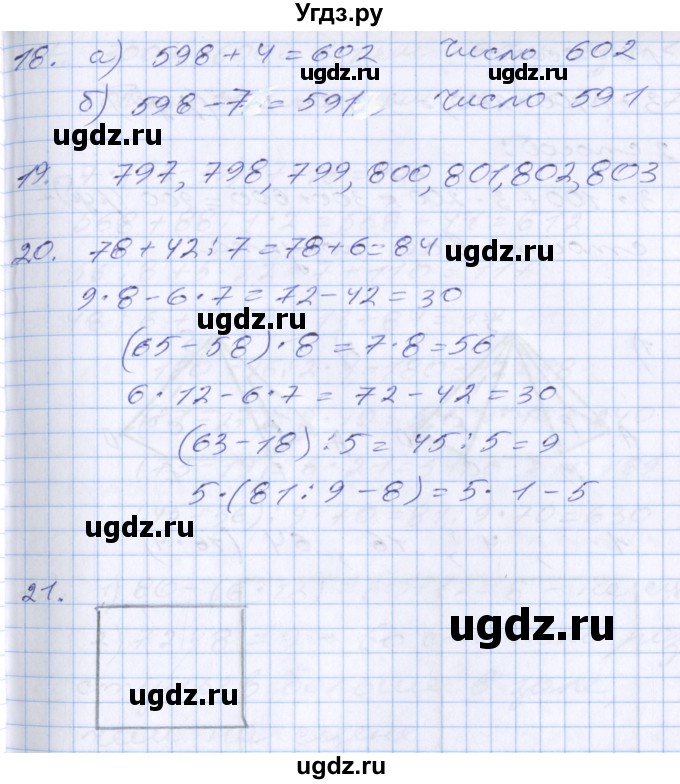 Угдз.ру
18. а) 598 + 4 = 602 Число 602
ugdz.ru ugdz.ru
б) 598 - 7 = 591, Число 591
ugdz.ru
19. 797, 798, 799, 800, 801, 802, 803
20. 78 + 42 : 7 = 78 + 6 = 84
ugdz.ru
9 · 8 - 6 · 7 = 72 - 42 = 30
ugdz.ru
(65 - 58) · 8 = 7 · 8 = 56
6 · 12 - 6 · 7 = 72 - 42 = 30
(63 - 18) : 5 = 45 : 5 = 9
5 · (81 : 9 - 8) = 5 · 1 - 5
ugdz.ru
21.
ugdz.ru
ugdz.ru
©ugdz.ru